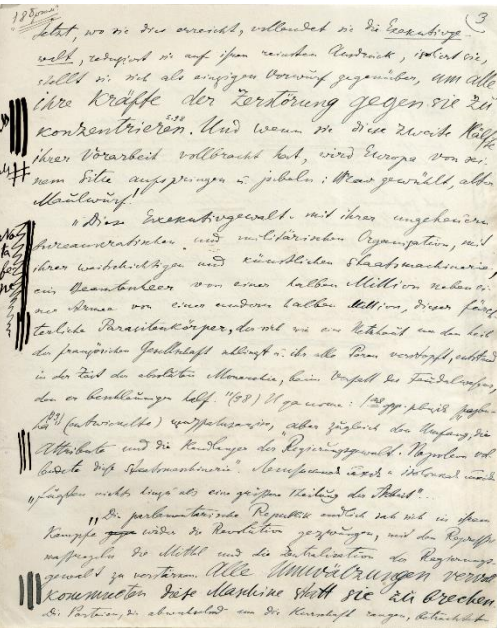 18 Брюм. (3
Jetzt, wo sie dies erreicht, vollendet sie die Exekutivge-
walt, reduziert sie auf ihren reinsten Ausdruck, isoliert sie,
stellt sie sich als einzigen Vorwurf gegenüber, um alle
ihre Kräfte der Zerstörung gegen sie zu
konzentrieren. Und wenn sie diese zweite Hälfte
ihrer Vorarbeit vollbracht hat, wird Europa von sei-
nem Sitze aufspringen u. jubeln: Brav gewühlt, alter
Maulwurf!
"Diese Exekutivgewalt mit ihrer ungeheuern
bureaukratischen und militärischen Organisation, mit
ihrer weitschichtigen und künstlichen Staatsmaschinerie,
ein Beamtenheer von einer halben Million neben ei-
ner Armee von einer andern halben Million, dieser fürch-
terliche Parasitenkörper, der sich wie eine Netzhaut um den Leib
der französischen Gesellschaft schlingt u. ihr alle Poren verstopft, entstand
in der Zeit der absoluten Monarchie, beim Verfall des Feudalwesens,
den er beschleunigen half." (98)
"aber zugleich den Umfang, die
Attribute und die Handlanger der Regierungsgewalt. Napoleon vol-
lendete diese Staatsmaschinerie".
"fügten nichts hinzu als eine größere Teilung der Arbeit"
"Die parlamentarische Republik endlich sah sich in ihrem
Kampfe wider die Revolution gezwungen, mit den Repressiv-
maßregeln die Mittel und die Zentralisation der Regierungs-
gewalt zu verstärken. Alle Umwälzungen vervoll-
kommneten diese Maschine statt sie zu brechen
Die Parteien, die abwechselnd um die Herrschaft rangen, betrachteten